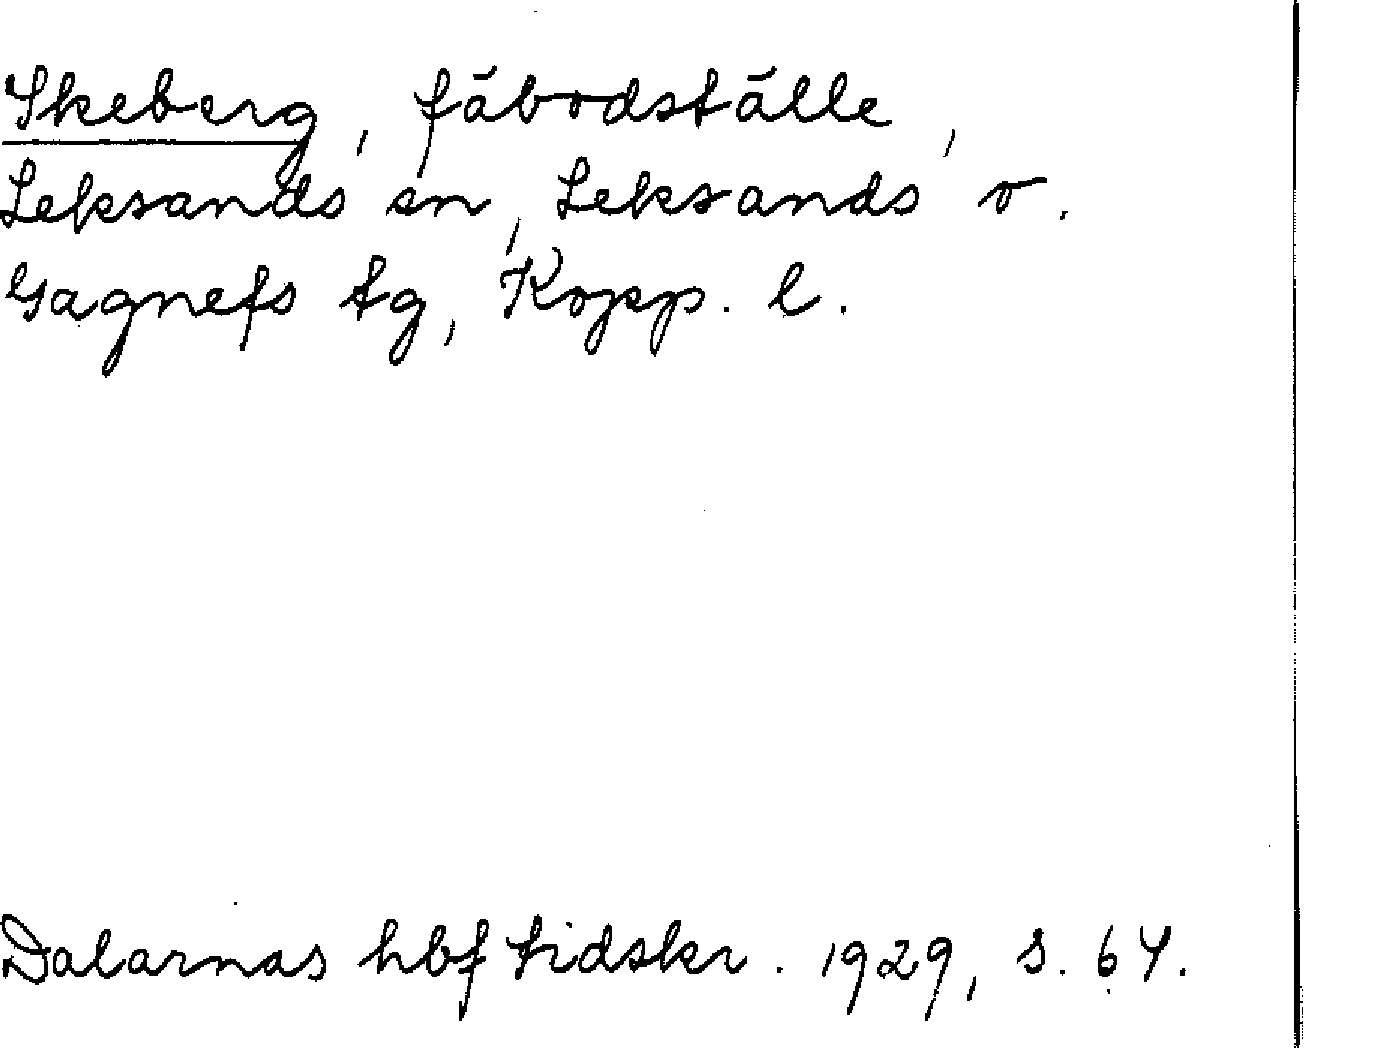 Skeberg, fäbodställe,
Leksands sn, Leksands o.
Gagnefs tg, Kopp. l.
Dalarnas hbf tidskr. 1929, s. 64.